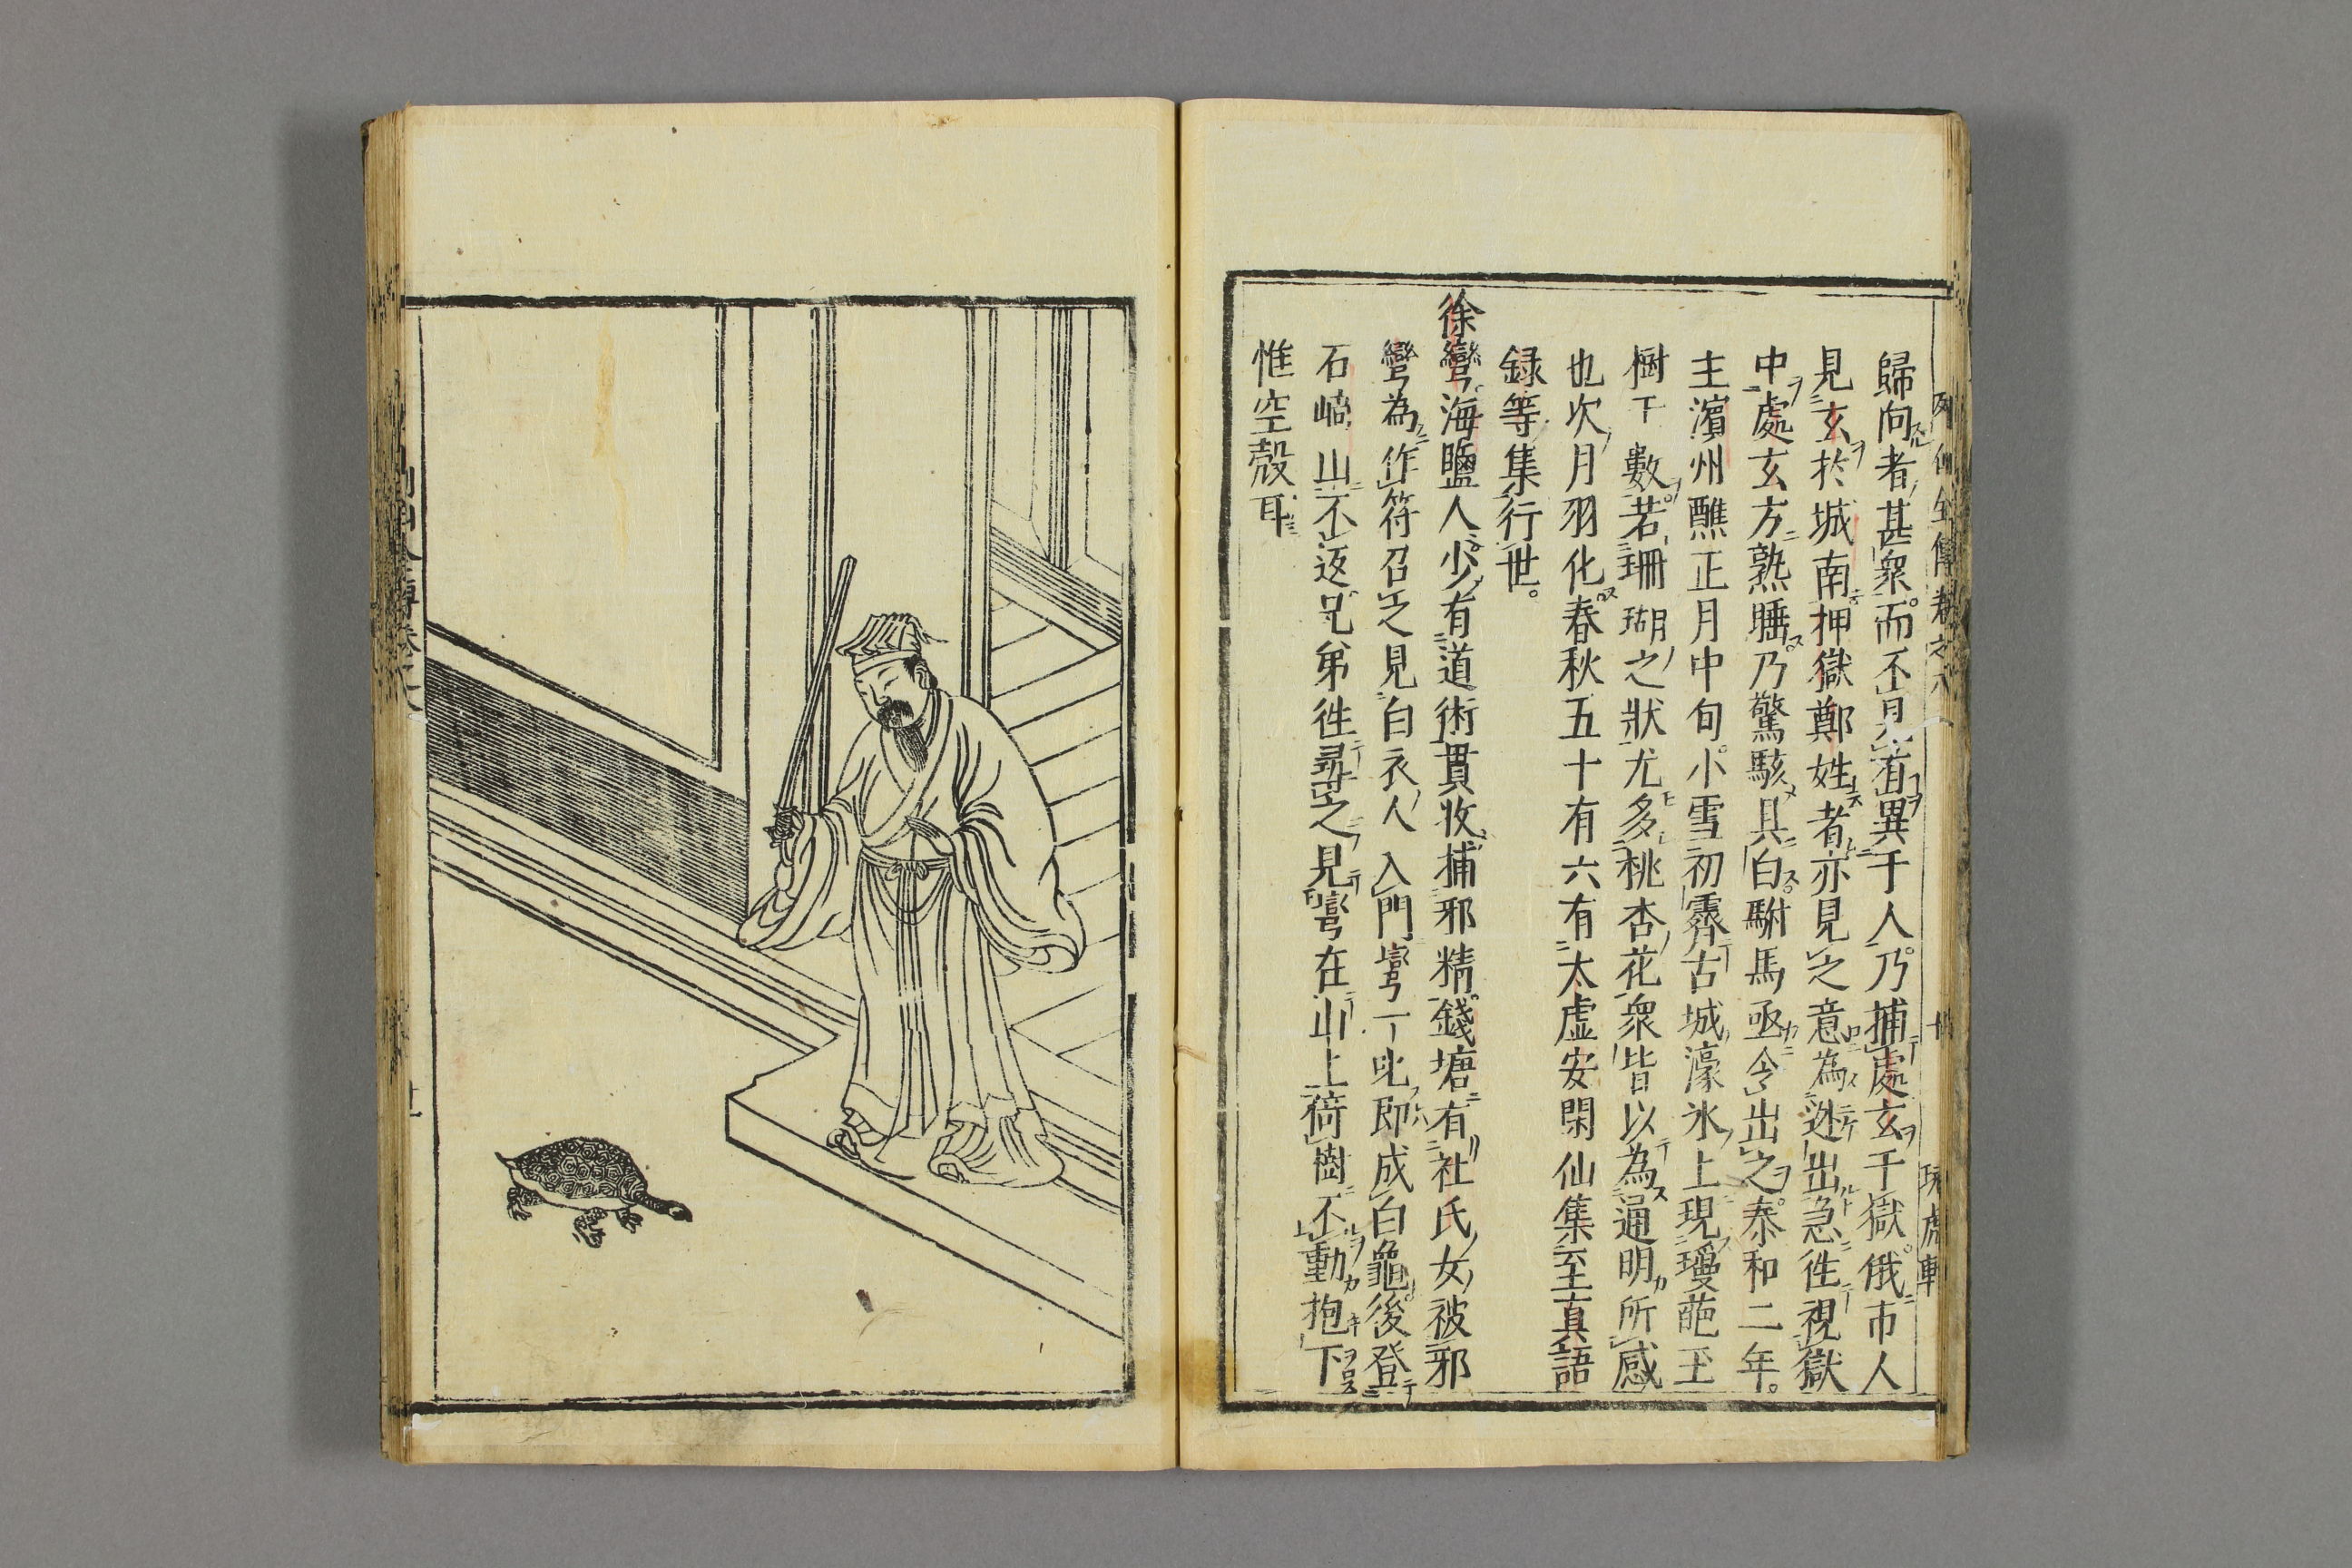 列仙全傳卷之八
玩虎軒
歸向者甚衆而不見有異于人乃捕處玄于獄俄市人
見玄於城南押獄鄭姓者亦見之意為逃出急徃視獄
中處玄方熟睡乃驚駭具白駙馬亟令出之泰和二年
主濱州醮正月中旬小雪初霽古城濠氷上現璦葩玉
樹千數若珊瑚之狀尤多桃杏花衆皆以為通明所感
也次月羽化春秋五十有六有太虚安閑仙集至真語
録等集行世
徐彎海鹽人少有道術貫收捕邪精錢塘有社氏女被邪
彎為作符召之見白衣人入門彎一叱即成白龜後登
石崎山不返兄弟徃尋之見彎在山上荷樹不動抱下
惟空殼耳
列仙全傳卷之八